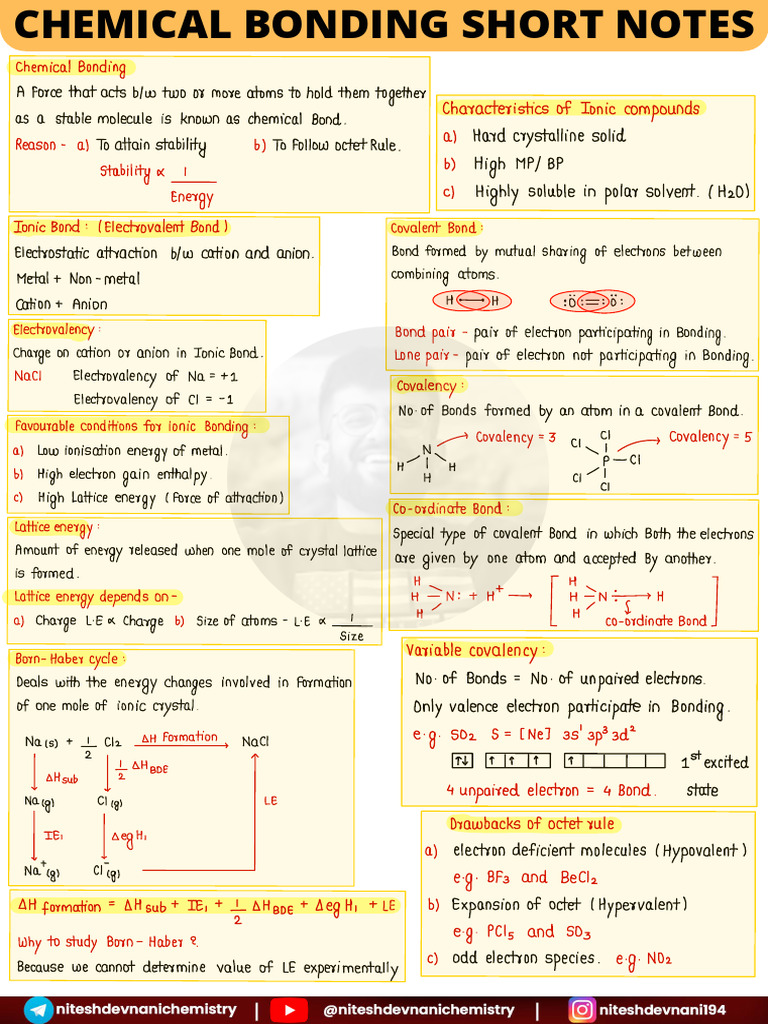 CHEMICAL BONDING SHORT NOTES
Chemical Bonding
A force that acts b/w two or more atoms to hold them together
as a stable molecule is known as chemical Bond.
Reason - a) To attain stability b) To Follow octet Rule.
Stability ∝ 1
Energy
Characteristics of Ionic compounds
a) Hard crystalline solid
b) High MP/ BP
c) Highly soluble in polar solvent. (H2O)
Ionic Bond: (Electrovalent Bond)
Electrostatic attraction b/w cation and anion.
Metal + Non-metal
Cation + Anion
Electrovalency:
Charge on cation or anion in Ionic Bond.
NaCl Electrovalency of Na = +1
Electrovalency of Cl = -1
Favourable conditions for ionic Bonding:
a) Low ionisation energy of metal.
b) High electron gain enthalpy.
c) High Lattice energy (Force of attraction)
Lattice energy:
Amount of energy released when one mole of crystal lattice
is formed.
Lattice energy depends on-
a) Charge L.E ∝ Charge b) Size of atoms - L.E ∝ 1
Size
Born-Haber cycle:
Deals with the energy changes involved in formation
of one mole of ionic crystal.
Na(s) + 1/2 Cl2 ΔH Formation NaCl
ΔHsub 1/2 ΔHBDE
Na(g) Cl(g) LE
IE1 ΔegH1
Na+(g) Cl-(g)
ΔH formation = ΔHsub + IE1 + 1/2 ΔHBDE + ΔegH1 + LE
Why to study Born-Haber ?
Because we cannot determine value of LE experimentally
Covalent Bond:
Bond formed by mutual sharing of electrons between
combining atoms.
H H :Ö = Ö:
Bond pair - pair of electron participating in Bonding.
Lone pair - pair of electron not participating in Bonding.
Covalency:
No. of Bonds formed by an atom in a covalent Bond.
N H H H Covalency = 3 Cl Cl P Cl Cl Cl Covalency = 5
Co-ordinate Bond:
Special type of covalent Bond in which Both the electrons
are given by one atom and accepted By another.
H H
H - N: + H+ → [ H - N: → H ]
H H co-ordinate Bond
Variable covalency:
No. of Bonds = No. of unpaired electrons.
Only valence electron participate in Bonding.
e.g. SO2 S = [Ne] 3s1 3p3 3d2
↑↓ ↑ ↑ ↑ ↑ 1st excited
4 unpaired electron = 4 Bond. state
Drawbacks of octet rule
a) electron deficient molecules (Hypovalent)
e.g. BF3 and BeCl2
b) Expansion of octet (Hypervalent)
e.g. PCl5 and SO3
c) odd electron species. e.g. NO2
niteshdevnanichemistry | @niteshdevnanichemistry | niteshdevnani194